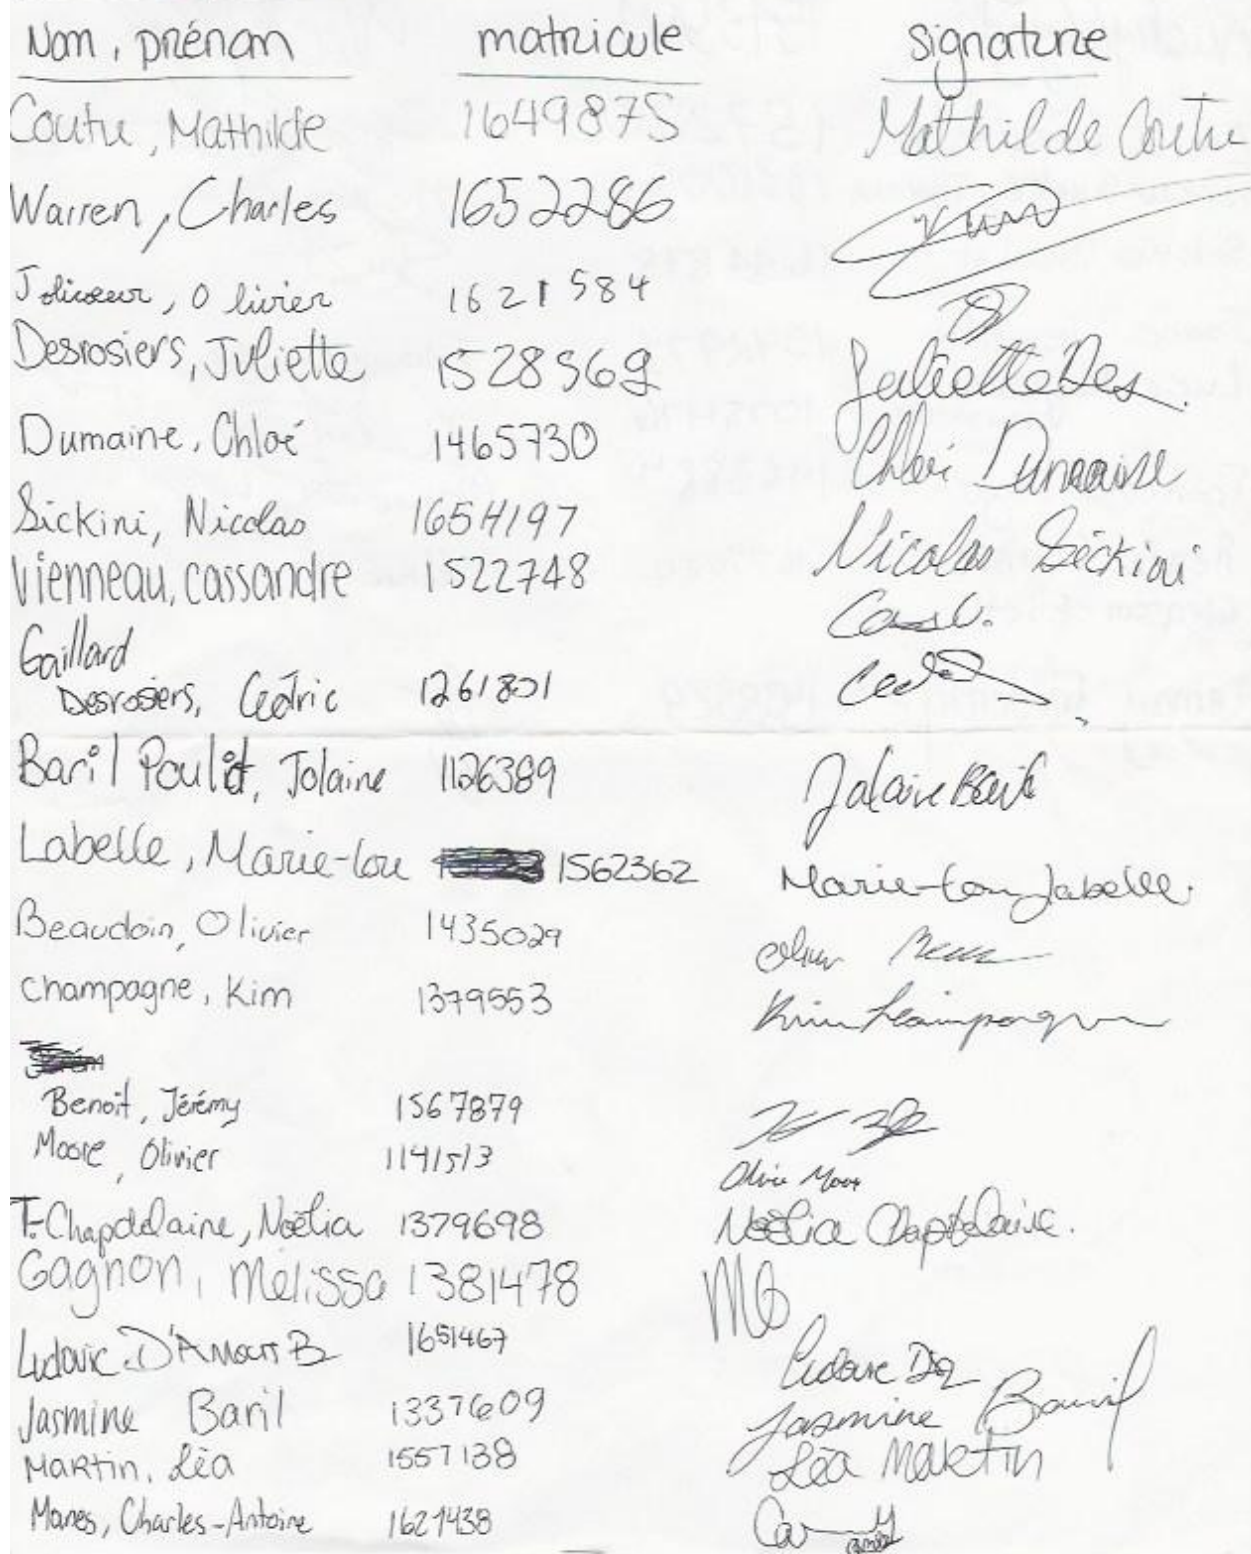 Nom, prénom matricule signature
Coutu, Mathilde 1649875 Mathilde Coutu
Warren, Charles 1652286
Jolicoeur, Olivier 1621584
Desrosiers, Juliette 1528569 Juliette Des.
Dumaine, Chloé 1465730 Chloé Dumaine
Sickini, Nicolas 1654197 Nicolas Sickini
Vienneau, cassandre 1522748 Cass V.
Gaillard
Desrosiers, Cédric 1261801
Baril Pouliot, Jolaine 1126389 Jolaine Baril
Labelle, Marie-Lou 1562362 Marie-Lou Labelle
Beaudoin, Olivier 1435029
Champagne, Kim 1379553 Kim Champagne
Benoit, Jérémy 1567879
Moore, Olivier 1141513 Olivier Moore
T.-Chapdelaine, Noëlia 1379698 Noëlia Chapdelaine.
Gagnon, Mélissa 1381478 MG
Ludovic D'Amours B 1651467
Jasmine Baril 1337609 Jasmine Baril
Martin, Léa 1557138 Léa Martin
Manes, Charles-Antoine 1621438